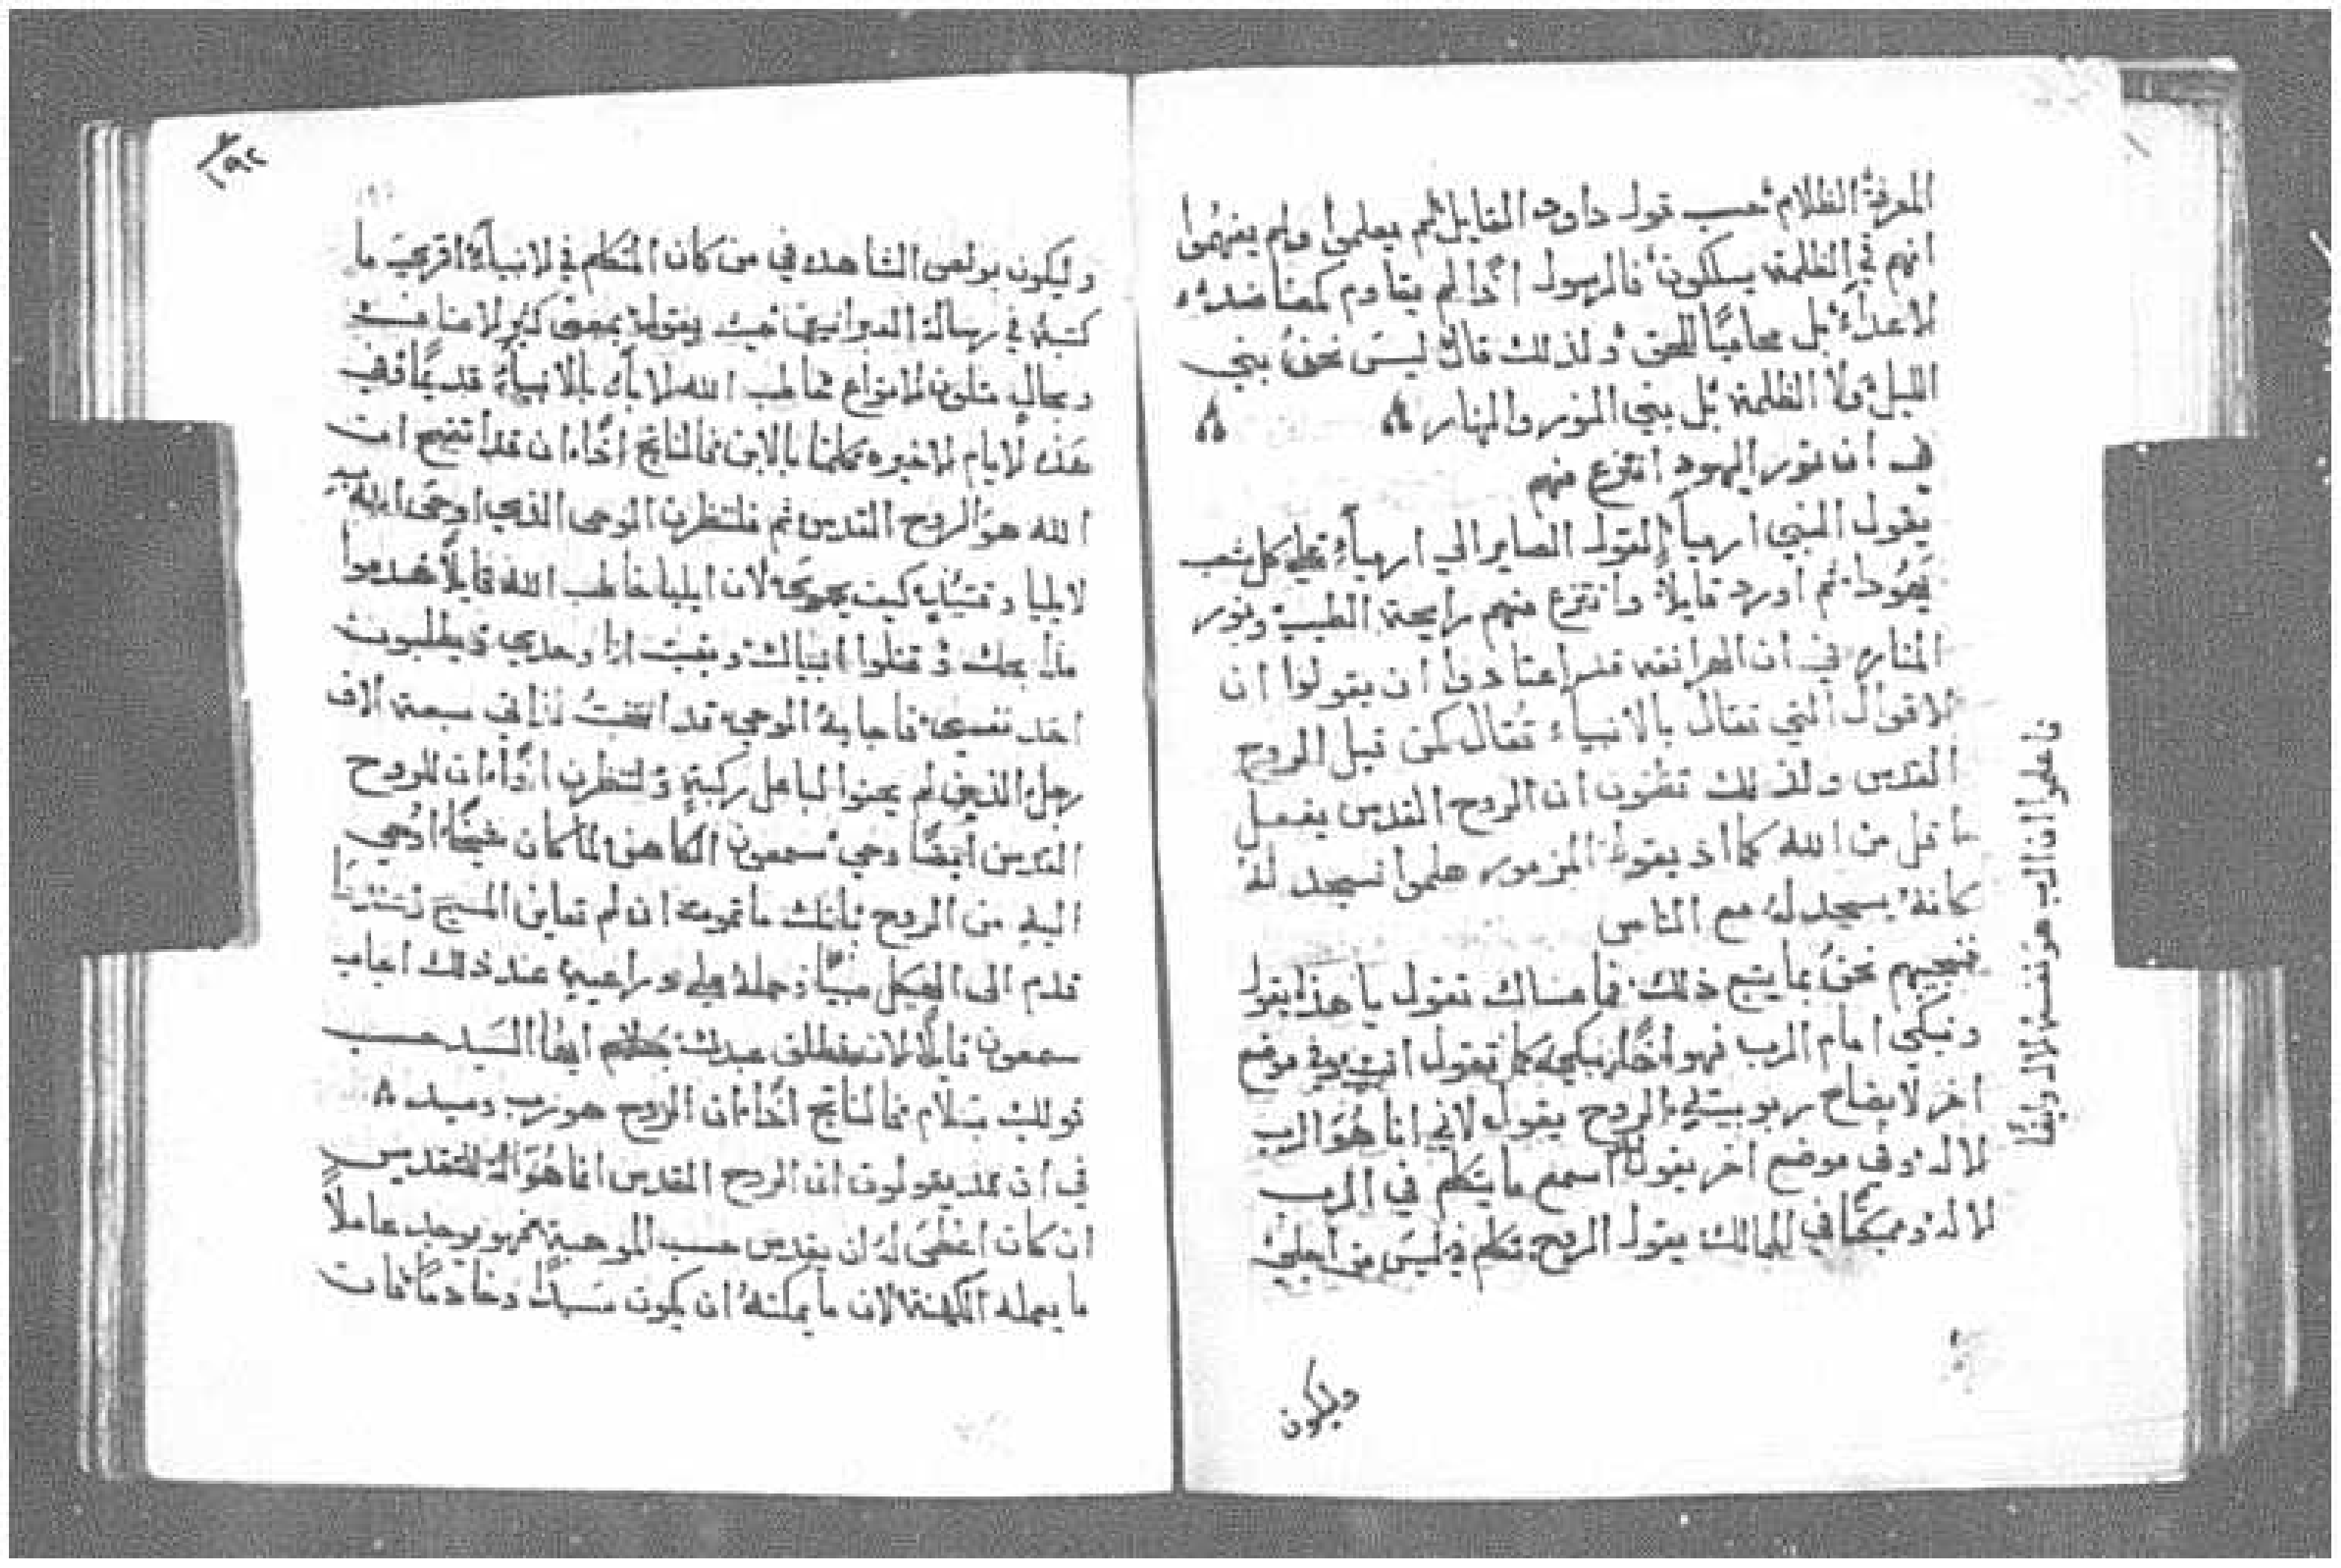 المعرفة الظلام حسب قول داود القايل لم يعلموا ولم يفهموا
انهم في الظلمة يسلكون فالرسول اذًا لم يقاوم كمضاضدة
الاعداء بل محاميًا للحق ولذلك قال ليس نحن بني
الليل ولا الظلمة بل بني النور والنهار
في ان نور اليهود انتزع منهم
يقول النبي ارميا القول الصاير الي ارمياء علي كل شعب
يهودا ثم اورد قايلًا وانتزع منهم رايحة الطيب ونور
المناره في ان الهراتقه قد اعتادوا ان يقولوا ان
الاقوال التي تقال بالانبياء تقال من قبل الروح
القدس ولذلك تظنون ان الروح القدس يفعل
باقل من الله كما اذ يقول المزمور هلموا نسجد له
كانه يسجد له مع الناس
فنجيبهم نحن بما يتبع ذلك فما عساك تقول يا هذا يقول
ونبكي امام الرب فهو اذًا يبكي كما تقول انت وفي موضع
اخر لايضاح ربوبيته الروح يقول لاني انا هو الرب
الاله وفي موضع اخر يقول اسمع ما يتكلم في الرب
الاله ومبكتًا في الممالك يقول الروح تكلم في ليس من اجلي
فاعلموا ان الرب هو نفسه الاله وايضًا
وليكون
١٩٢
وليكون بولص الشاهد في من كان المتكلم في الانبياء اقر بحيث ما
كتبه في رسالة العبرانيين حيث يقول بمعنى كثير الاصناف
وبحال متلون الانواع خاطب الله الاباء بالانبياء قديمًا وفي
هذه الايام الاخيره كلمنا بالابن فما الناتج اذًا ان قد اتضح ان
الله هو الروح القدس ثم فلننظرن الوحي الذي اوحى الله به
لايليا وتبيانه كيف يجي لان ايليا خاطب الله قايلًا هدموا
مذابحك وقتلوا انبياك وبقيت انا وحدي ويطلبون
اخذ نفسي فاجابه الوحي قد ابقيت لذاتي سبعة الاف
رجل الذين لم يحنوا لباعل ركبةٍ ولننظرن اذًا ان للروح
القدس ايضًا وحي سمعون الكاهن لما كان شيخًا اوحي
اليه من الروح بانك ما تموت ان لم تعاين المسيح
قدم الى الهيكل صبيًا وحمله علي دراعيه عند ذلك اجاب
سمعون قايلًا الان تطلق عبدك بسلام ايها السيد حسب
قولك بسلام فما الناتج اذًا ان الروح هو رب وسيد
في ان قد يقولون ان الروح القدس انما هو الة للتقديس
ان كان اعطي له ان يقدس حسب الموهبة فهو يوجد عاملًا
ما يعمله الكهنة لان ما يمكنه ان يكون سيدًا وخادمًا فان